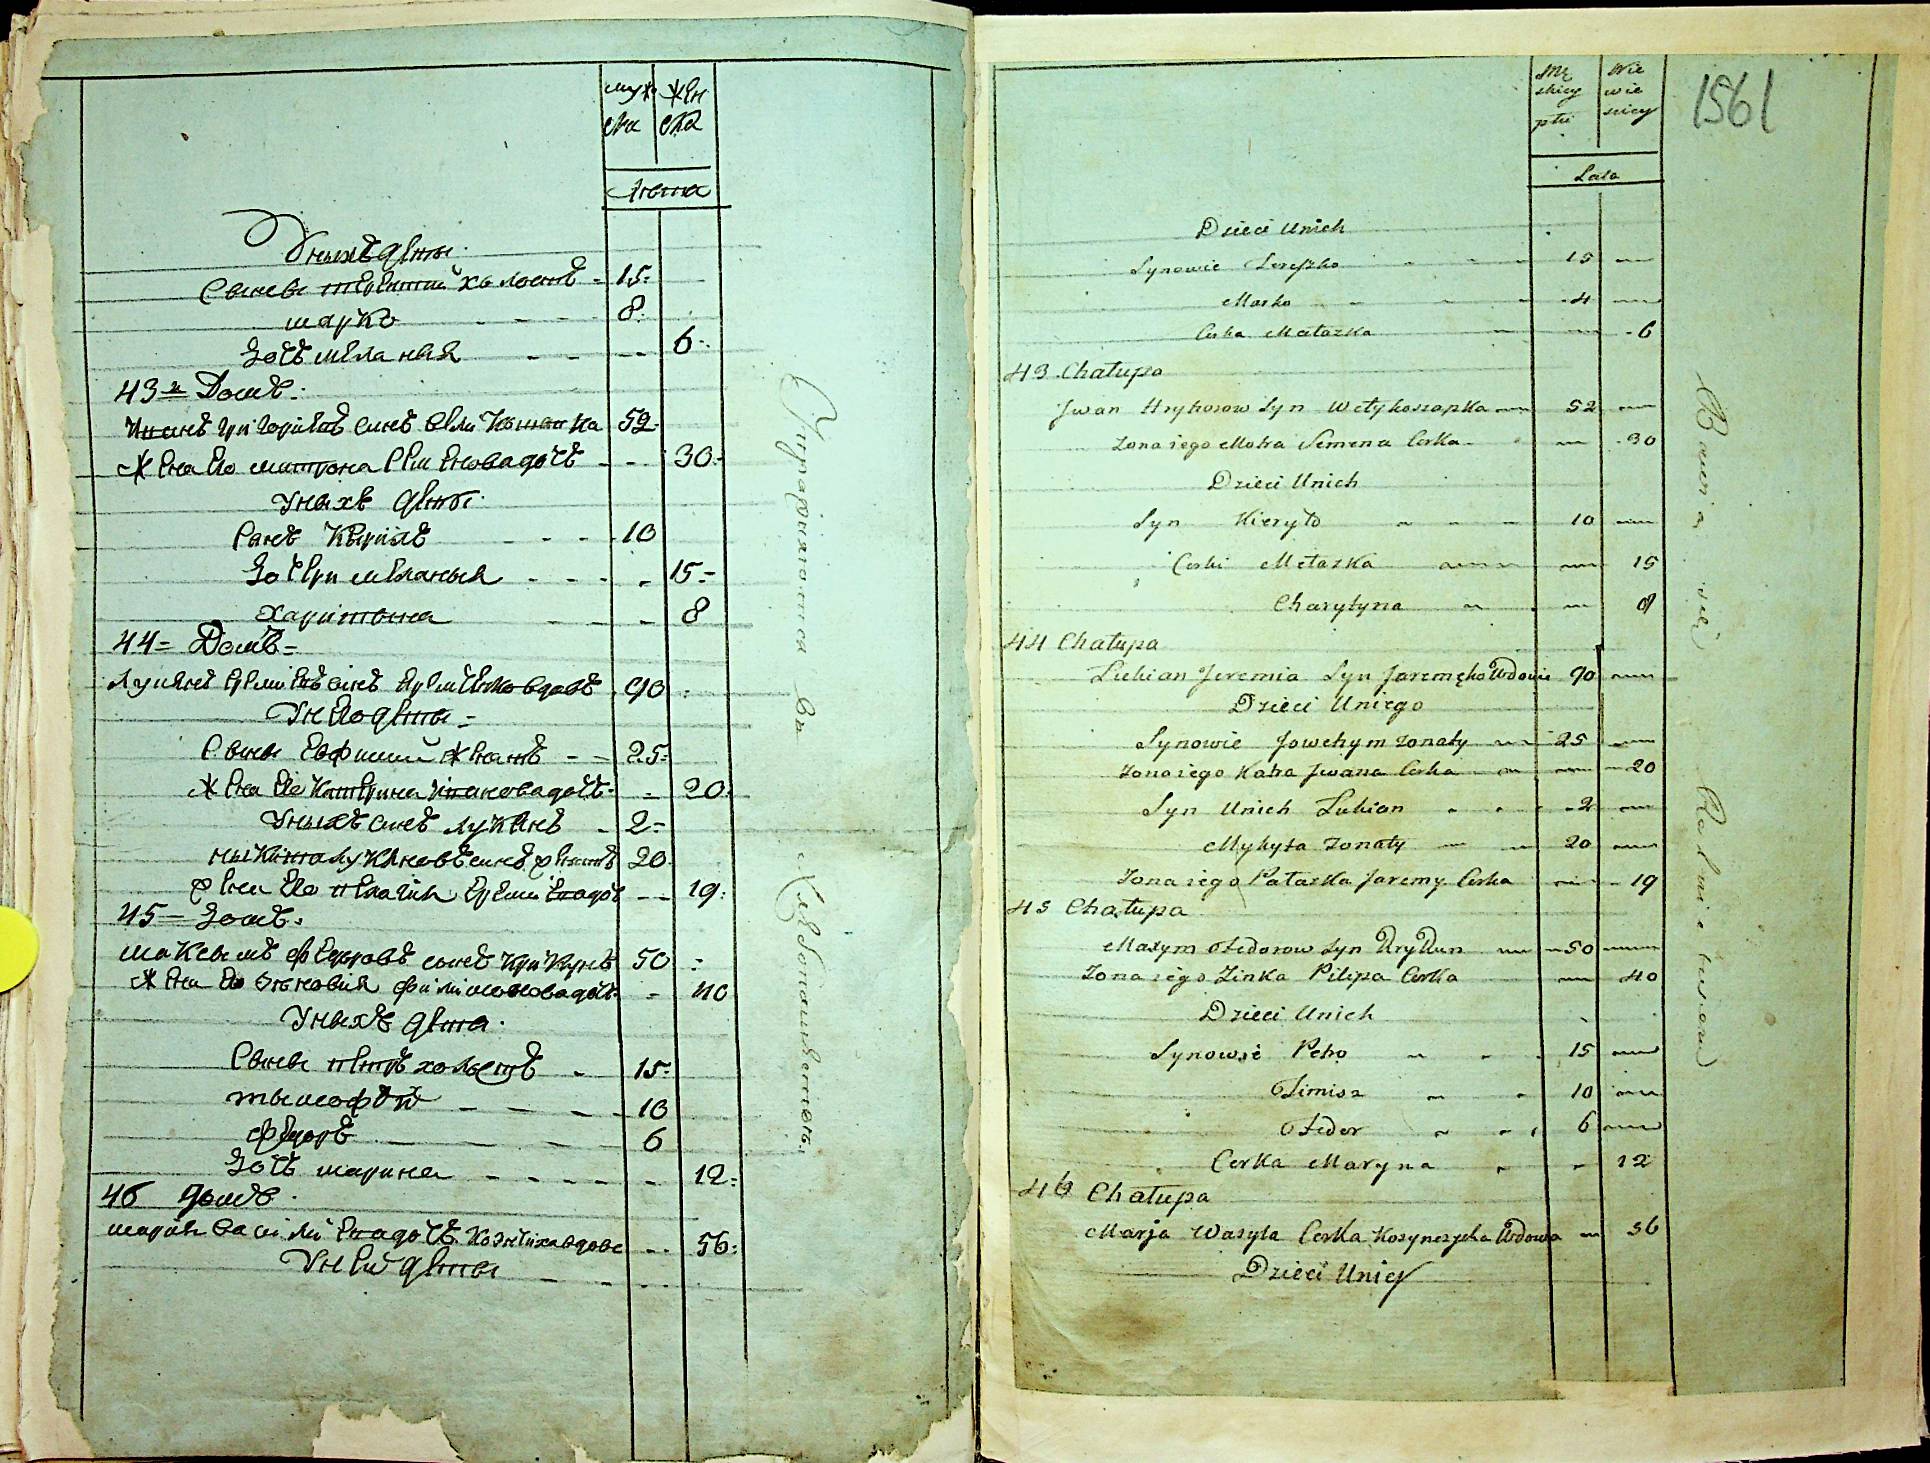 муж ска
жен ска
лета
У ныхъ дети
Сыны терентий холостъ 15
марко 8
дочъ меланья 6
43 Домъ
Иванъ григориевъ синъ 52
Жена Его матрона семенова дочъ 30
У ныхъ дети
Синъ Кирило 10
дочери меланья 15
харитына 8
44 Домъ
лукянъ яремиевъ синъ вдовъ 90
У него дети
Сыны Евфимий женатъ 25
Жена Его Катерина иванова дочъ 20
У ныхъ синъ лукянъ 2
Никита лукяновъ синъ женатъ 20
жена Его пелагия дочъ 19
45 домъ
максымъ федоровъ сынъ крикунъ 50
Жена Его зеновия филимонова дочъ 40
У ныхъ дети
Сыны петръ холостъ 15
тымофей 10
федоръ 6
дочъ марина 12
46 домъ
мария василиева дочъ вдова 56
У ней дети
Mę skiey płci
Nie wie sciey
Lata
1561
Dzieci Unich
Synowie Tereszko 15
Marko 4
Corka Małazka 6
43 Chałupa
Jwan Hryhorow Syn 52
Zona iego Motra Semena Corka 30
Dzieci Unich
Syn Kieryło 10
Corki Mełazka 15
Charytyna 8
44 Chałupa
Lukian Jeremia Syn Jaremęko Wdowie 90
Dzieci Uniego
Synowie Jowchym zonaty 25
Zona iego Katra Jwana Corka 20
Syn Unich Lukian 2
Mykyta zonaty 20
Zona iego Pałazka Jaremy Corka 19
45 Chałupa
Maxym Fedorow Syn Krykun 50
Zona iego Zinka Pilipa Corka 40
Dzieci Unich
Synowie Petro 15
Timisz 10
Fedor 6
Corka Maryna 12
46 Chałupa
Marja Wasyla Corka Kozynczycha Wdowa 56
Dzieci Uniey